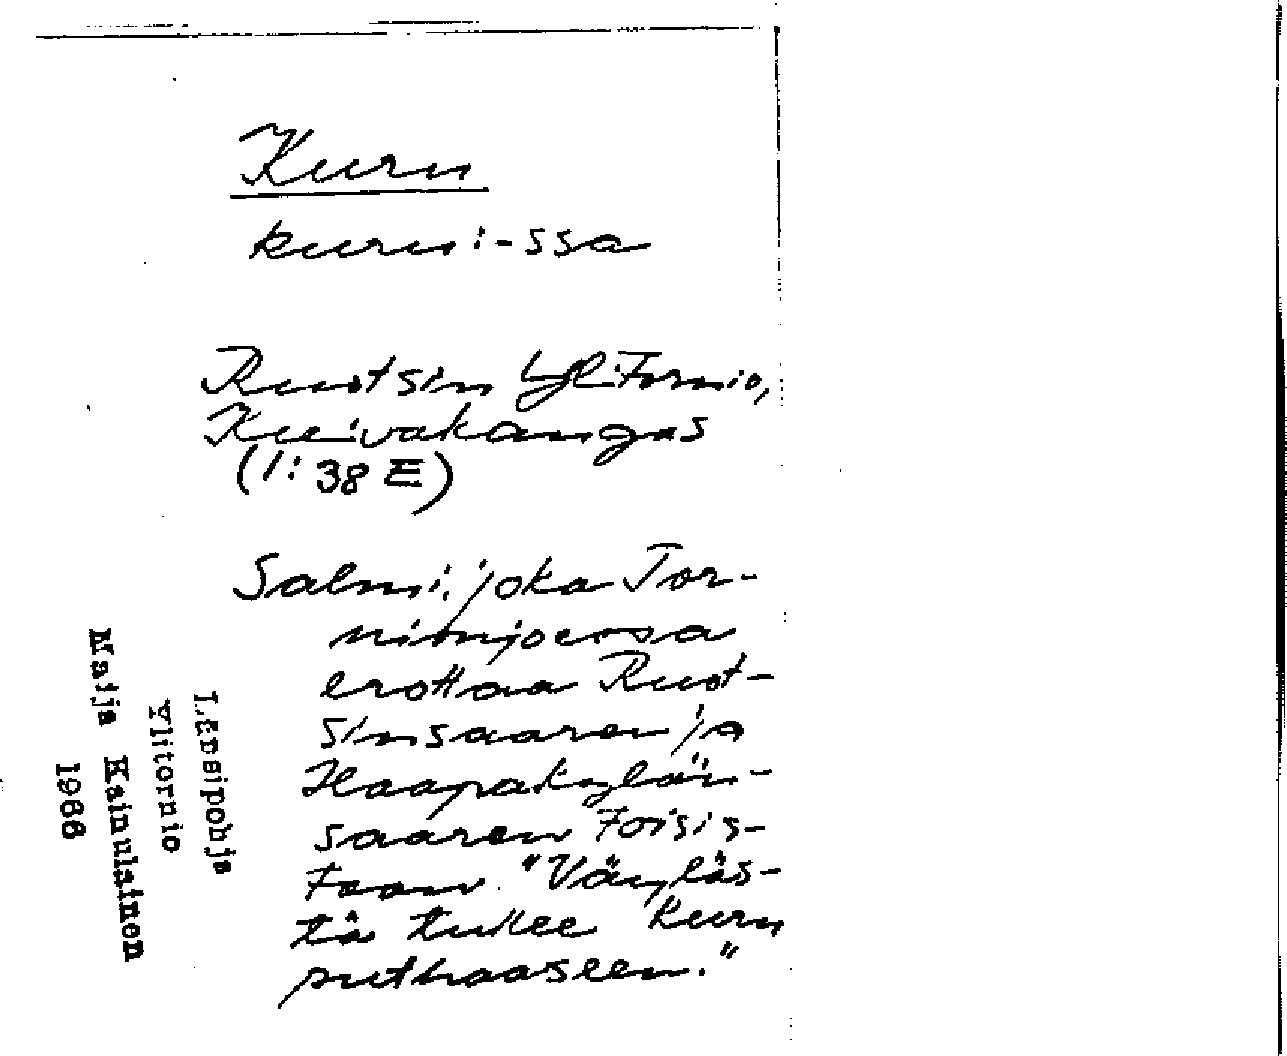 Kuru
kuru:-ssa
Ruotsin Ylitornio,
Kuivakangas
(1:38 E)
Salmi, joka Tor-
nionjoessa
erottaa Ruot-
sinsaaren ja
Haapakylän-
saaren toisis-
taan. "Väyläs-
tä tulee kuru
puthaaseen."
Länsipohja
Ylitornio
Maija Kainulainen
1966